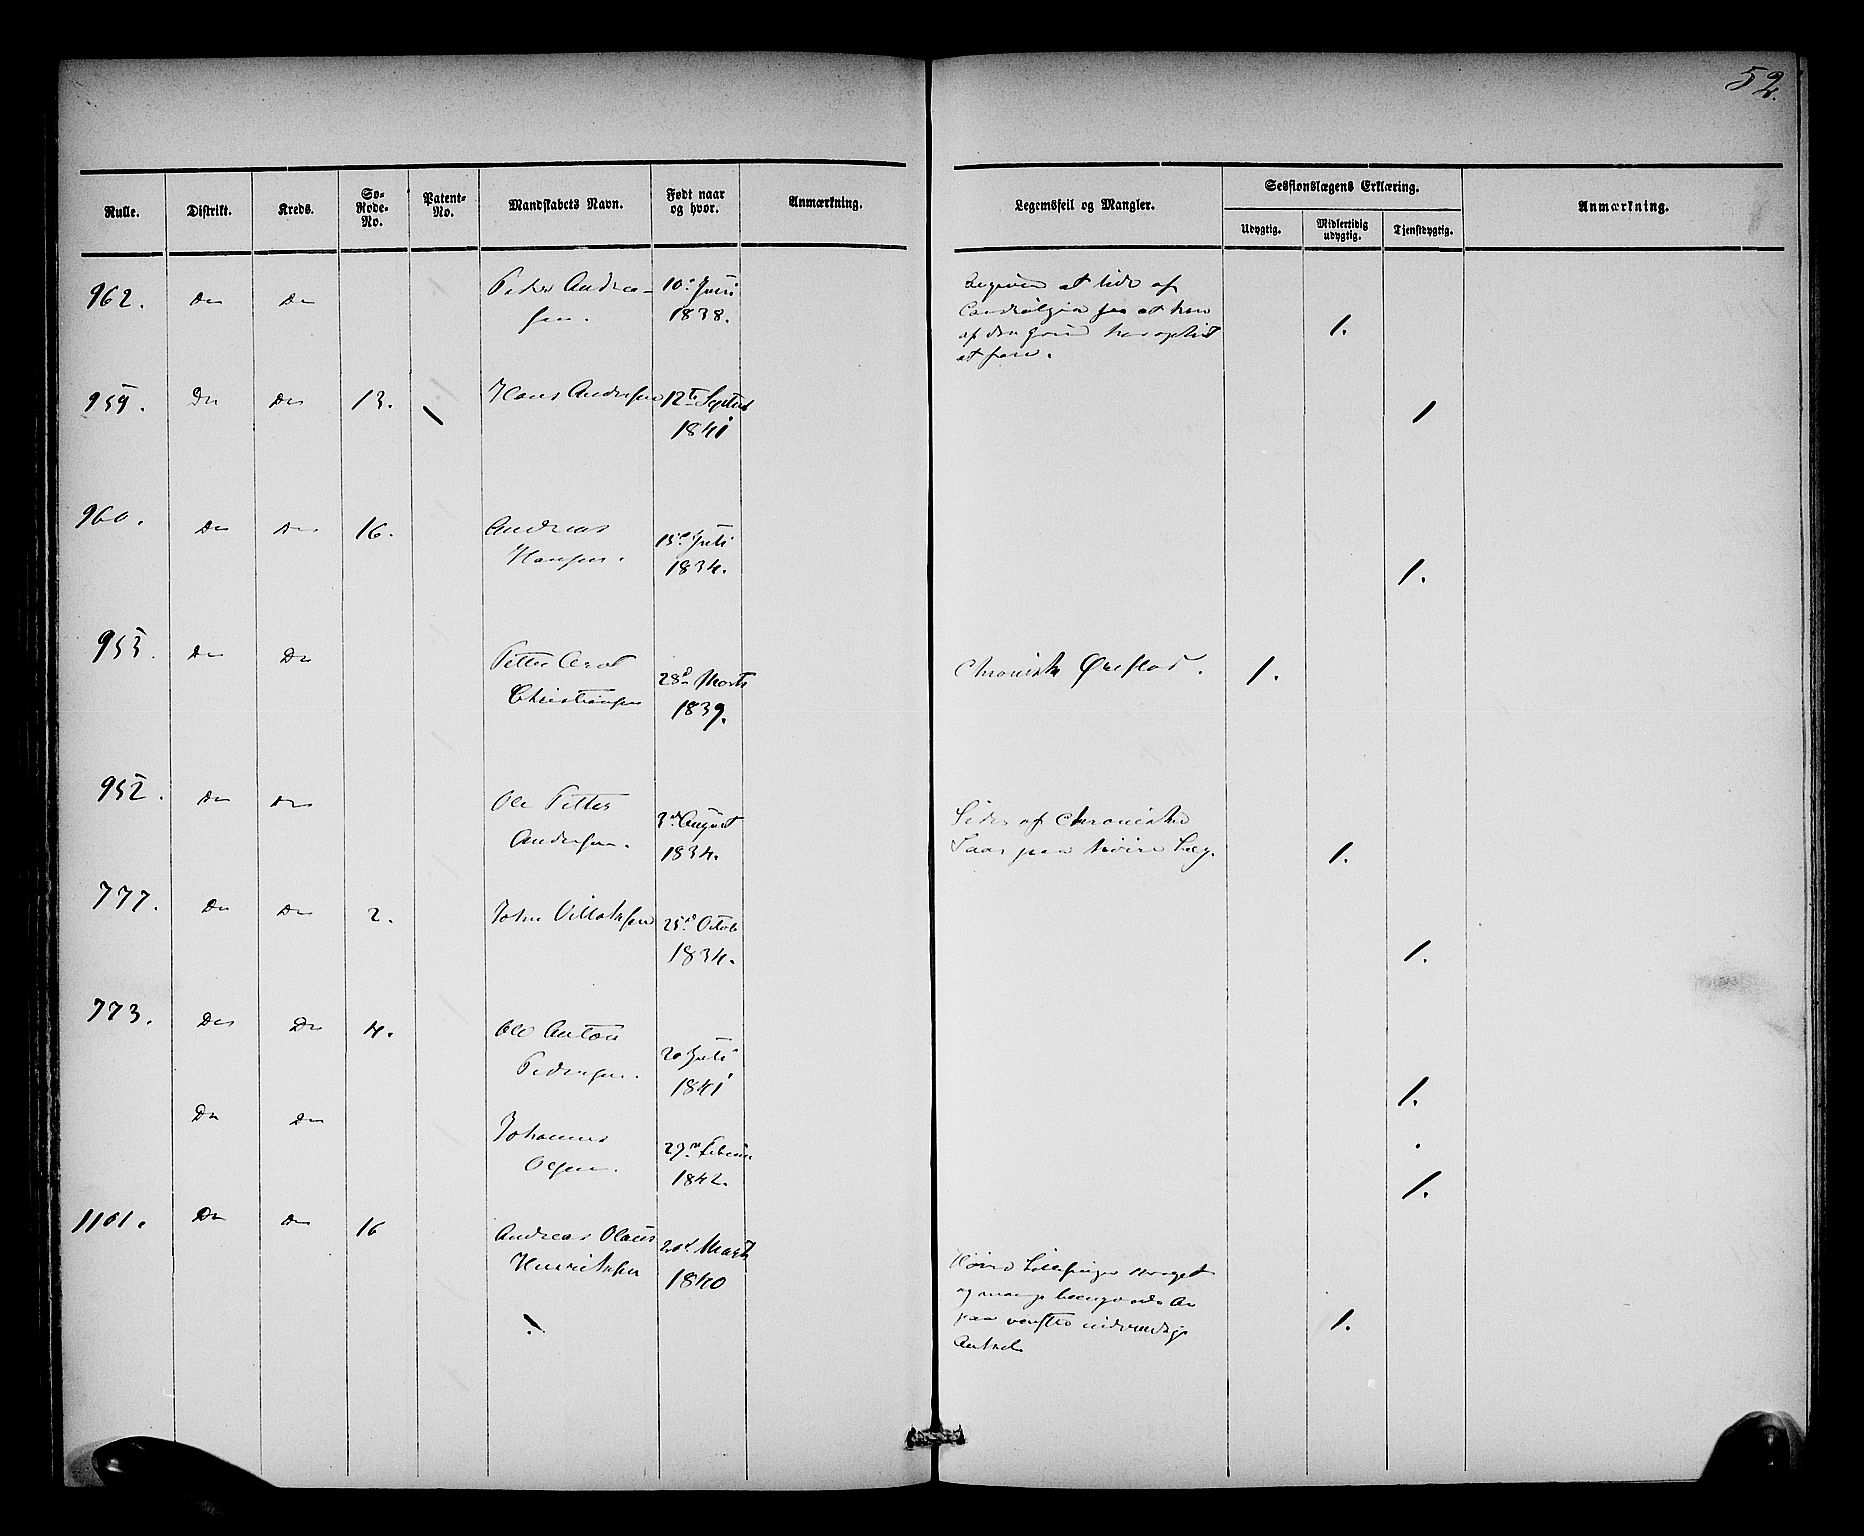 52.
Rulle. Distrikt. Kreds. So-Rode-No. Patent-No. Mandskabets Navn. Født naar og hvor. Anmærkning.
Legemsfeil og Mangler. Sessionslægens Erklæring. Anmærkning.
Udygtig. Midlertidig udygtig. Tjenstdygtig.
962. Do Do Peter Andrea- 10de Juni
sen. 1838.
Angiver at lide af
Cardialgia saa at han
af den Grund har ophørt
at fare. 1.
959. Do Do 13. Hans Andersen 12te Septbr
1841 1
960. Do Do 16. Andreas 15de Juli
Hansen. 1834. 1.
953. Do Do Petter Arnt 28de Marts
Christiansen 1839.
Chronisk Øreflod. 1.
952. Do Do Ole Petter 3die August
Andersen. 1834.
Lider af Chroniske
Saar paa høire Læg. 1.
777. Do Do 2. John 25de Octob
1834. 1.
773. Do Do 4. Ole Anton 20 Juli
Pedersen. 1841 1.
Do Do Johannes Februar
Olsen. 1842. 1.
1101. Do Do 16 Andreas Olaus 20de Marts
Henriksen 1840
Høire Lillefinger
og mange
paa venstre indvendige
1.